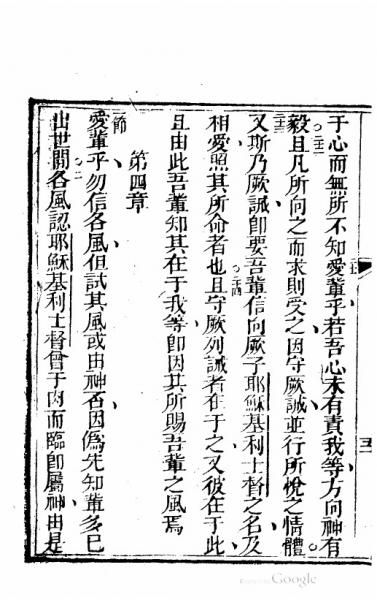 于心而無所不知愛輩乎若吾心未有責我等方向神有
毅且凡所向之而求則受之因守厥誡並行所悅之情體
又斯乃厥誡即要吾輩信向厥子耶穌基利士督之名及
相愛照其所命者也且守厥列誡者在于之又彼在于此
且由此吾輩知其在于我等即因其所賜吾輩之風焉
第四章
節
愛輩乎勿信各風但試其風或由神否因偽先知輩多已
出世間各風認耶穌基利士督曾于肉而臨即屬神由是
二十一
二十二
二十三
二十四
二
五
Google